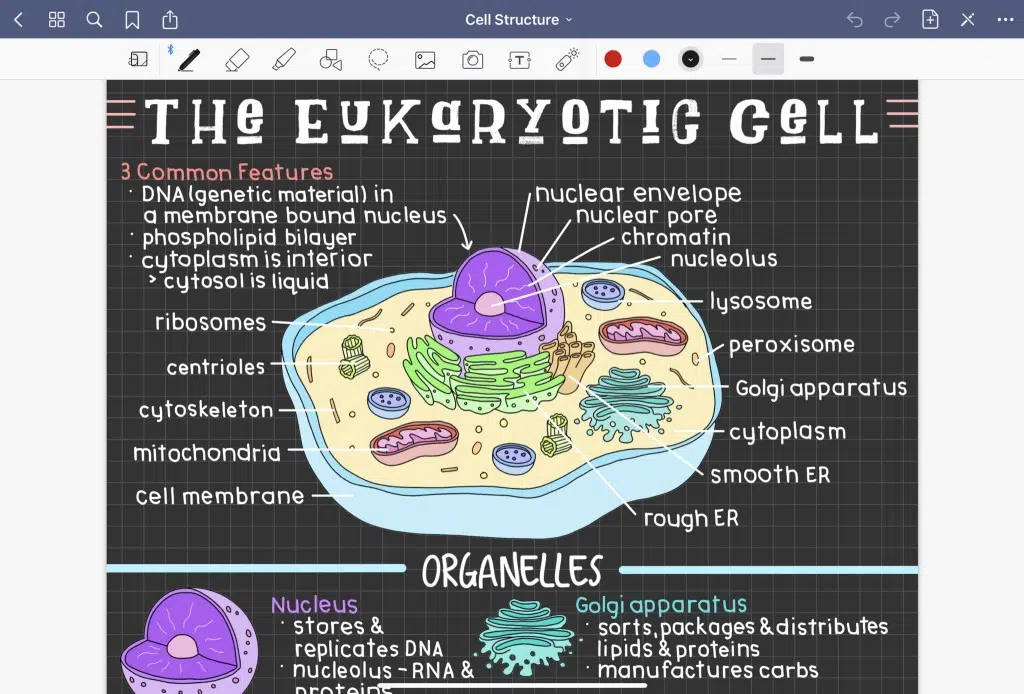 Cell Structure
T
THE EUKARYOTIC CELL
3 Common Features
· DNA (genetic material) in
a membrane bound nucleus
· phospholipid bilayer
· cytoplasm is interior
> cytosol is liquid
nuclear envelope
nuclear pore
chromatin
nucleolus
lysosome
peroxisome
Golgi apparatus
cytoplasm
smooth ER
rough ER
ribosomes
centrioles
cytoskeleton
mitochondria
cell membrane
ORGANELLES
Nucleus
· stores &
replicates DNA
· nucleolus - RNA &
proteins
Golgi apparatus
· sorts, packages & distributes
lipids & proteins
· manufactures carbs